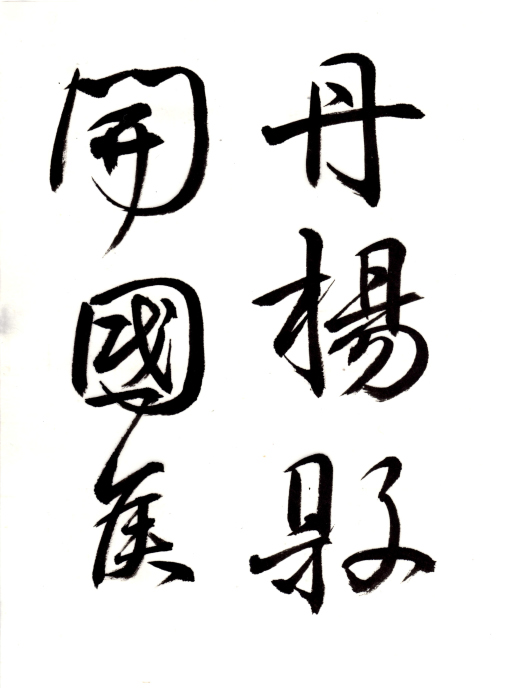 丹楊縣
開國侯